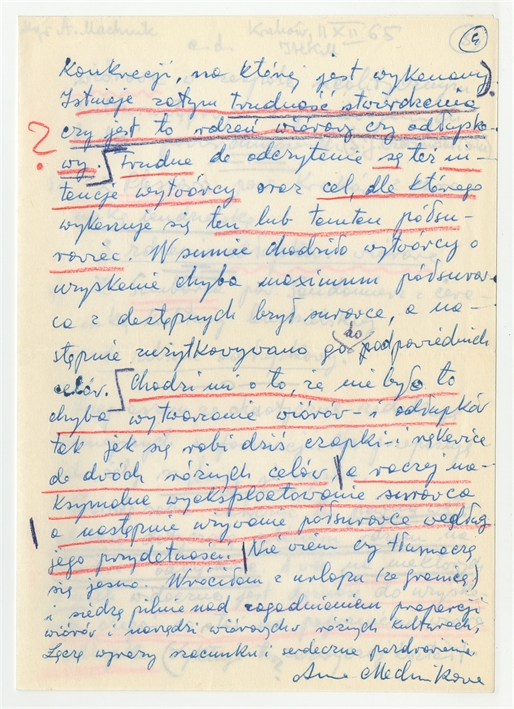 Mgr A. Machnik
Kraków 11 XII 65
c.d. IHKM
5
Konkrecji, na której jest wykonany).
Istnieje zatym trudność stwierdzenia
czy jest to rdzeń wiórowy czy odłupko-
? wy. Trudne do odczytania są też in-
tencje wytwórcy oraz cel, dla którego
wykonuje się ten lub tamten półsu-
rowiec. W sumie chodziło wytwórcy o
uzyskanie chyba maximum półsurow-
ca z dostępnych brył surowca, a na-
stępnie zużytkowywano go do odpowiednich
celów. Chodzi mi o to, że nie było to
chyba wytwarzanie wiórów i odłupków
tak jak się robi dziś czapki i rękawice
do dwóch różnych celów, a raczej ma-
ksymalne wyeksploatowanie surowca
a następnie używanie półsurowca według
jego przydatności. Nie wiem czy tłumaczę
się jasno. Wróciłam z urlopu (ze granicą)
i siedzę pilnie nad zagadnieniem proporcji
wiórów i narzędzi wiórowych w różnych kulturach.
Łączę wyrazy szacunku i serdeczne pozdrowienia.